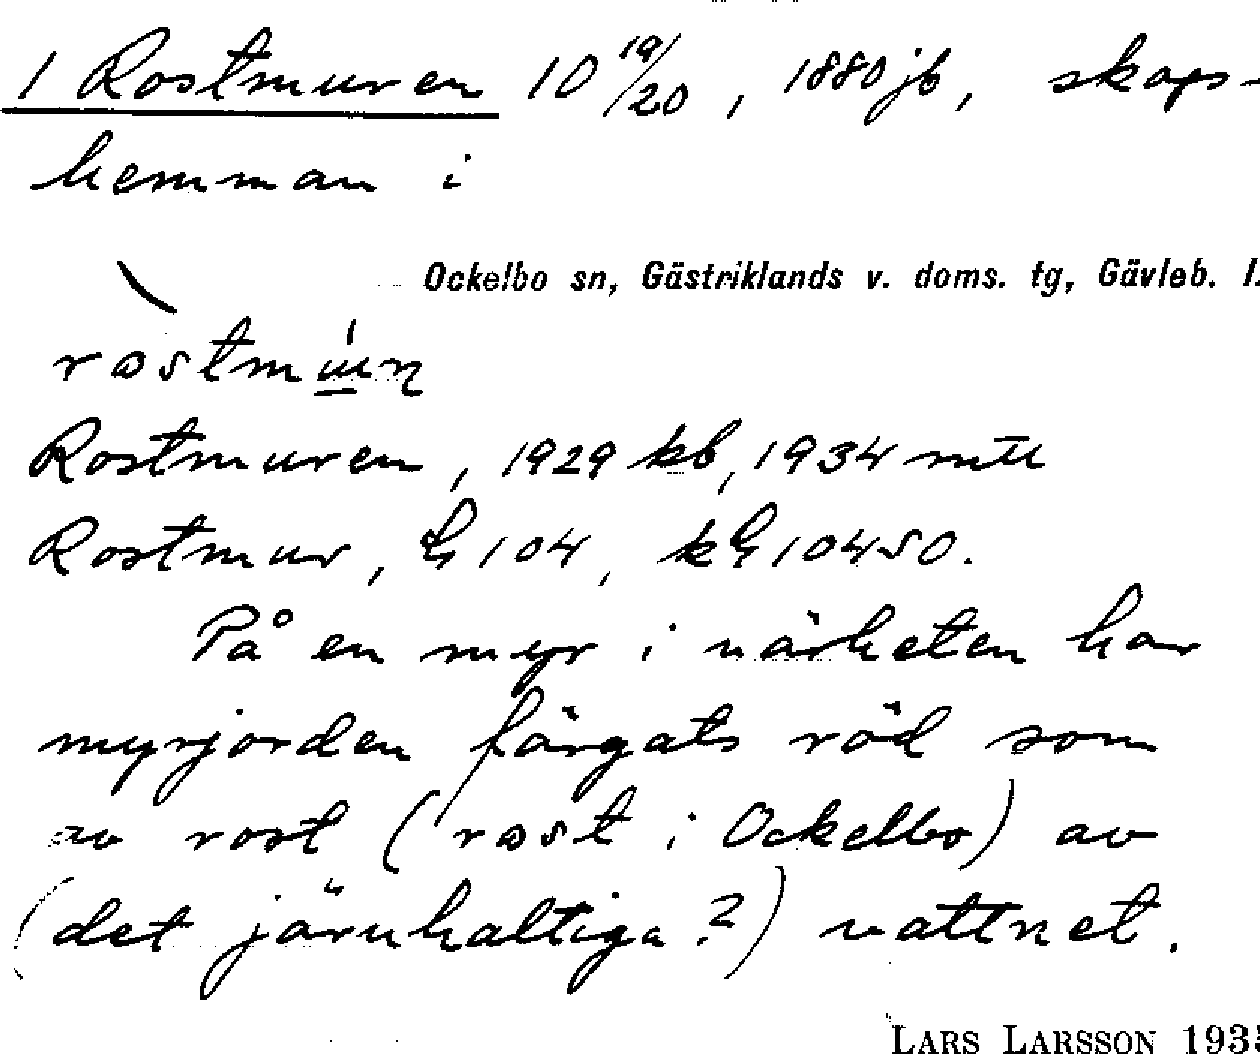 1 Rostmuren 10 19/20, 1880 jb, skaps-
hemman i
Ockelbo sn, Gästriklands v. doms. tg, Gävleb. l.
Rostmuren, 1929 kb, 1934 mtl
Rostmur, h 104, kh 10450.
På en myr i närheten har
myrjorden färgats röd som
av rost (rɷst i Ockelbo) av
(det järnhaltiga?) vattnet.
LARS LARSSON 1935